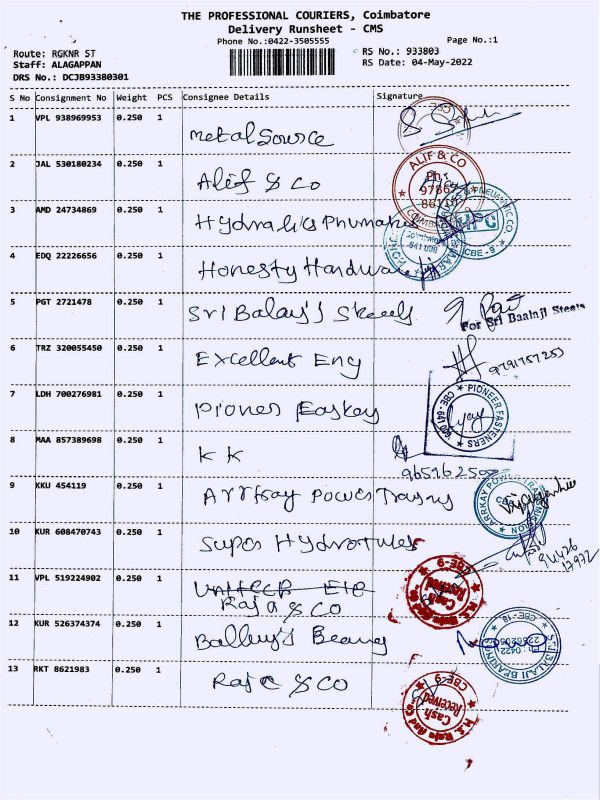 THE PROFESSIONAL COURIERS, Coimbatore
Delivery Runsheet - CMS
Phone No.:0422-3505555
Page No.:1
Route: RGKNR ST
RS No.: 933803
Staff: ALAGAPPAN
RS Date: 04-May-2022
DRS No.: DCJB93380301
S No Consignment No Weight PCS Consignee Details Signature
1 VPL 938969953 0.250 1 Metal Source
2 JAL 530180234 0.250 1 Alif & Co
ALIF & CO
Ph:
3 AMD 24734869 0.250 1 Hydralics Phumatics
HPC
CBE - 9
641 009
4 EDQ 22226656 0.250 1 Honesty Hardware
5 PGT 2721478 0.250 1 Sri Balaji Steels
For Sri Baalaji Steels
6 TRZ 320055450 0.250 1 Excellent Eng
9791757253
7 LDH 700276981 0.250 1 Pioner Faskey
PIONEER FASTENERS
8 MAA 857389698 0.250 1 K K
9 KKU 454119 0.250 1 Arrkay Power Trasny
ARRKAY POWER TRANSMISSION
10 KUR 608470743 0.250 1 Super Hydrotules
11 VPL 519224902 0.250 1 Raja & Co
CBE-9
Cash
Received
12 KUR 526374374 0.250 1 Balleey's Bearng
CBE-18
Ph: 0422
13 RKT 8621983 0.250 1 Raja & Co
CBE-9
Cash
Received
M.S. Raja And Co